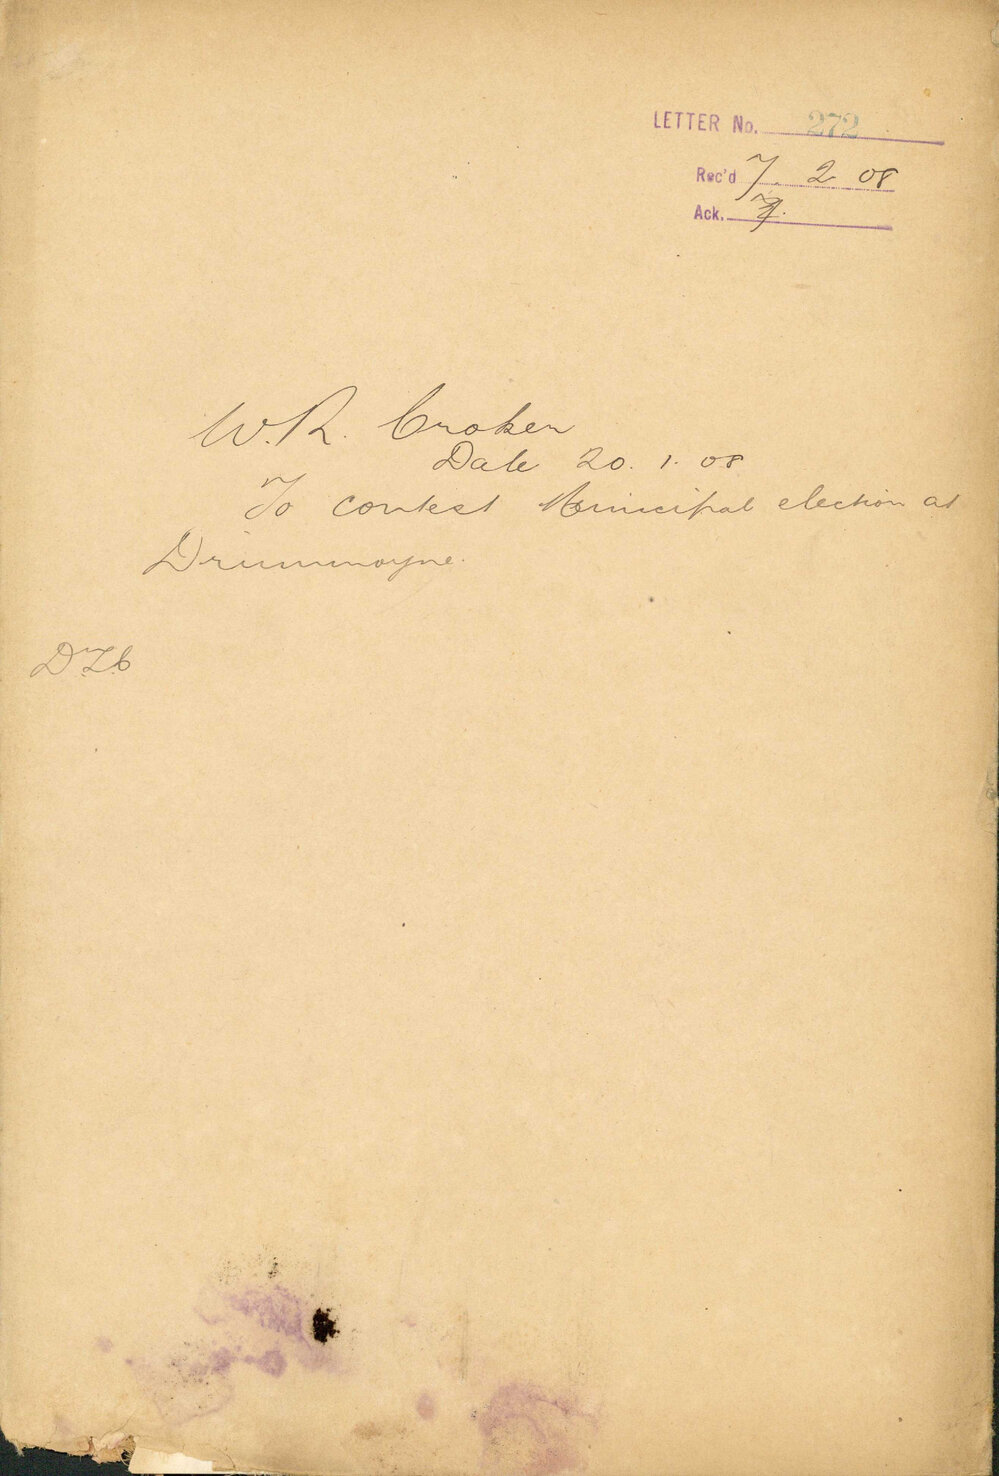 LETTER No. 272
Rec'd 7. 2 08
Ack.
W. R. Croker
Date 20. 1. 08
To contest Municipal election at
Drummoyne.